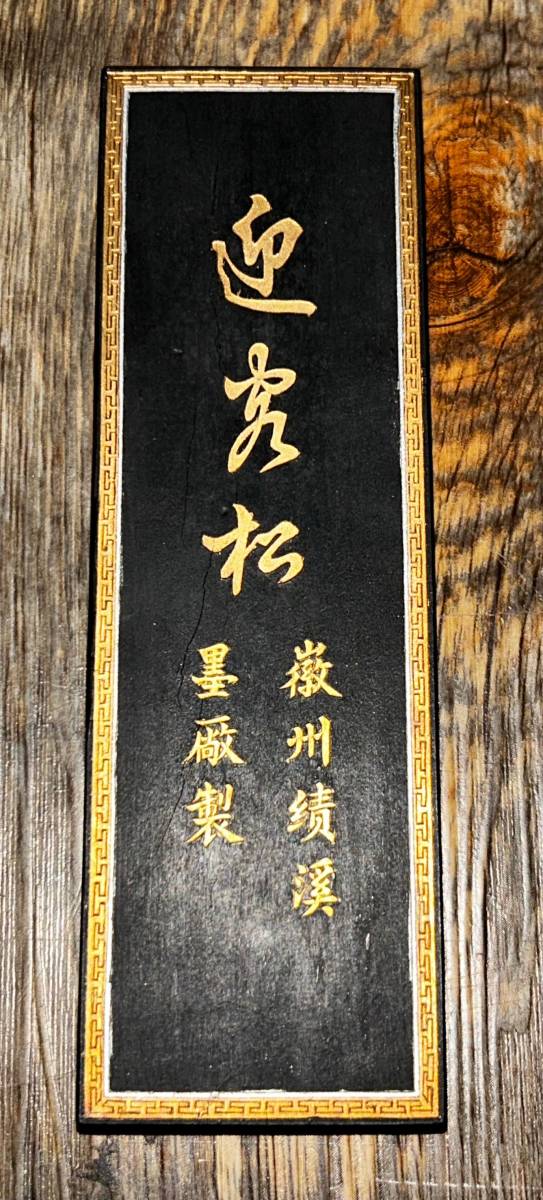 迎客松
徽州绩溪
墨厰製